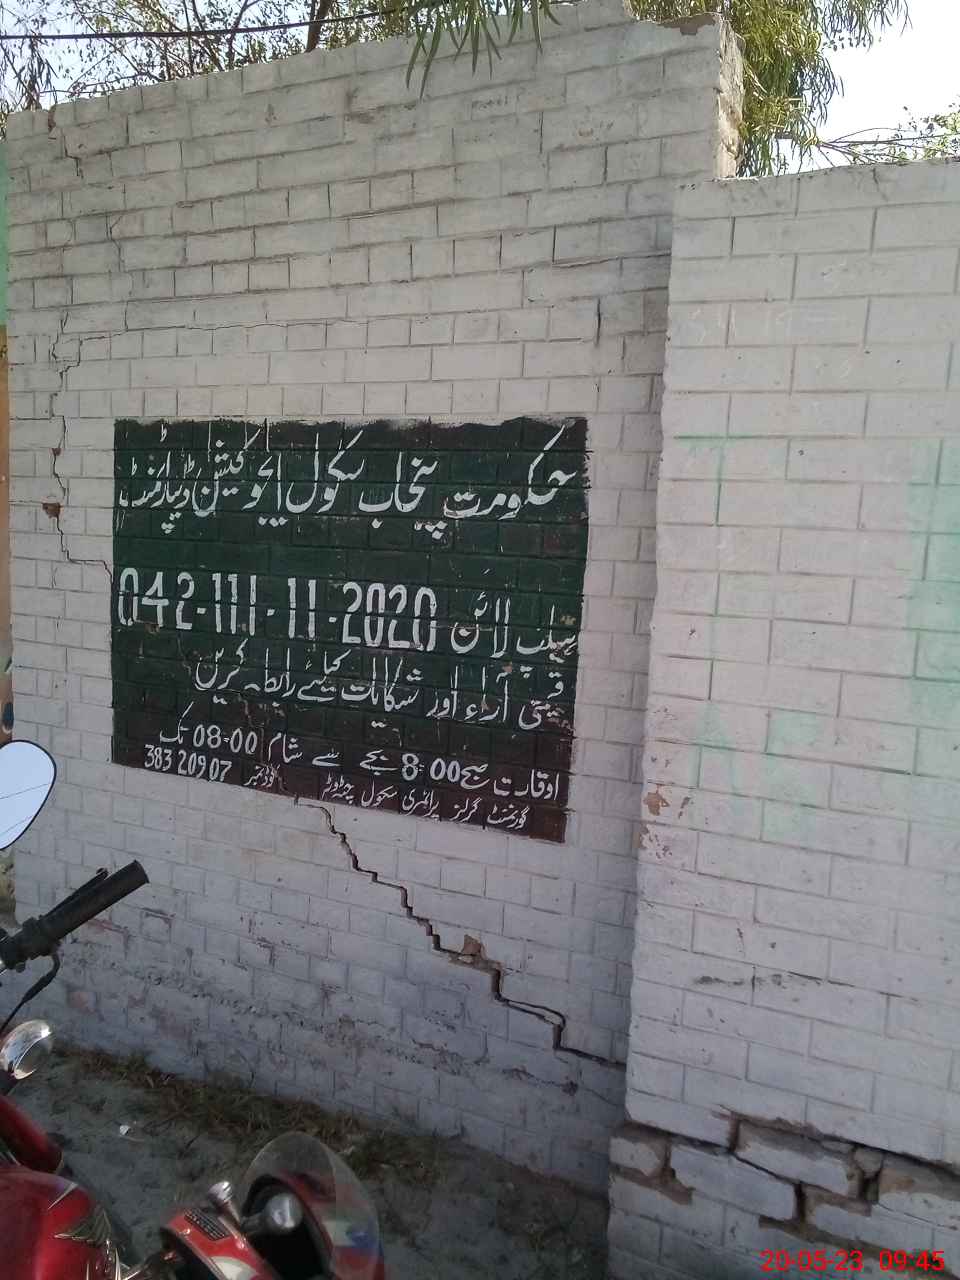 حکومت پنجاب سکول ایجوکیشن ڈیپارٹمنٹ
ہیلپ لائن 042-111-11-2020
قیمتی آراء اور شکایات کیلئے رابطہ کریں
اوقات صبح 8:00 بجے سے شام 08:00 تک
گورنمنٹ گرلز پرائمری سکول کوڈ نمبر 38320907
20-05-23 09:45